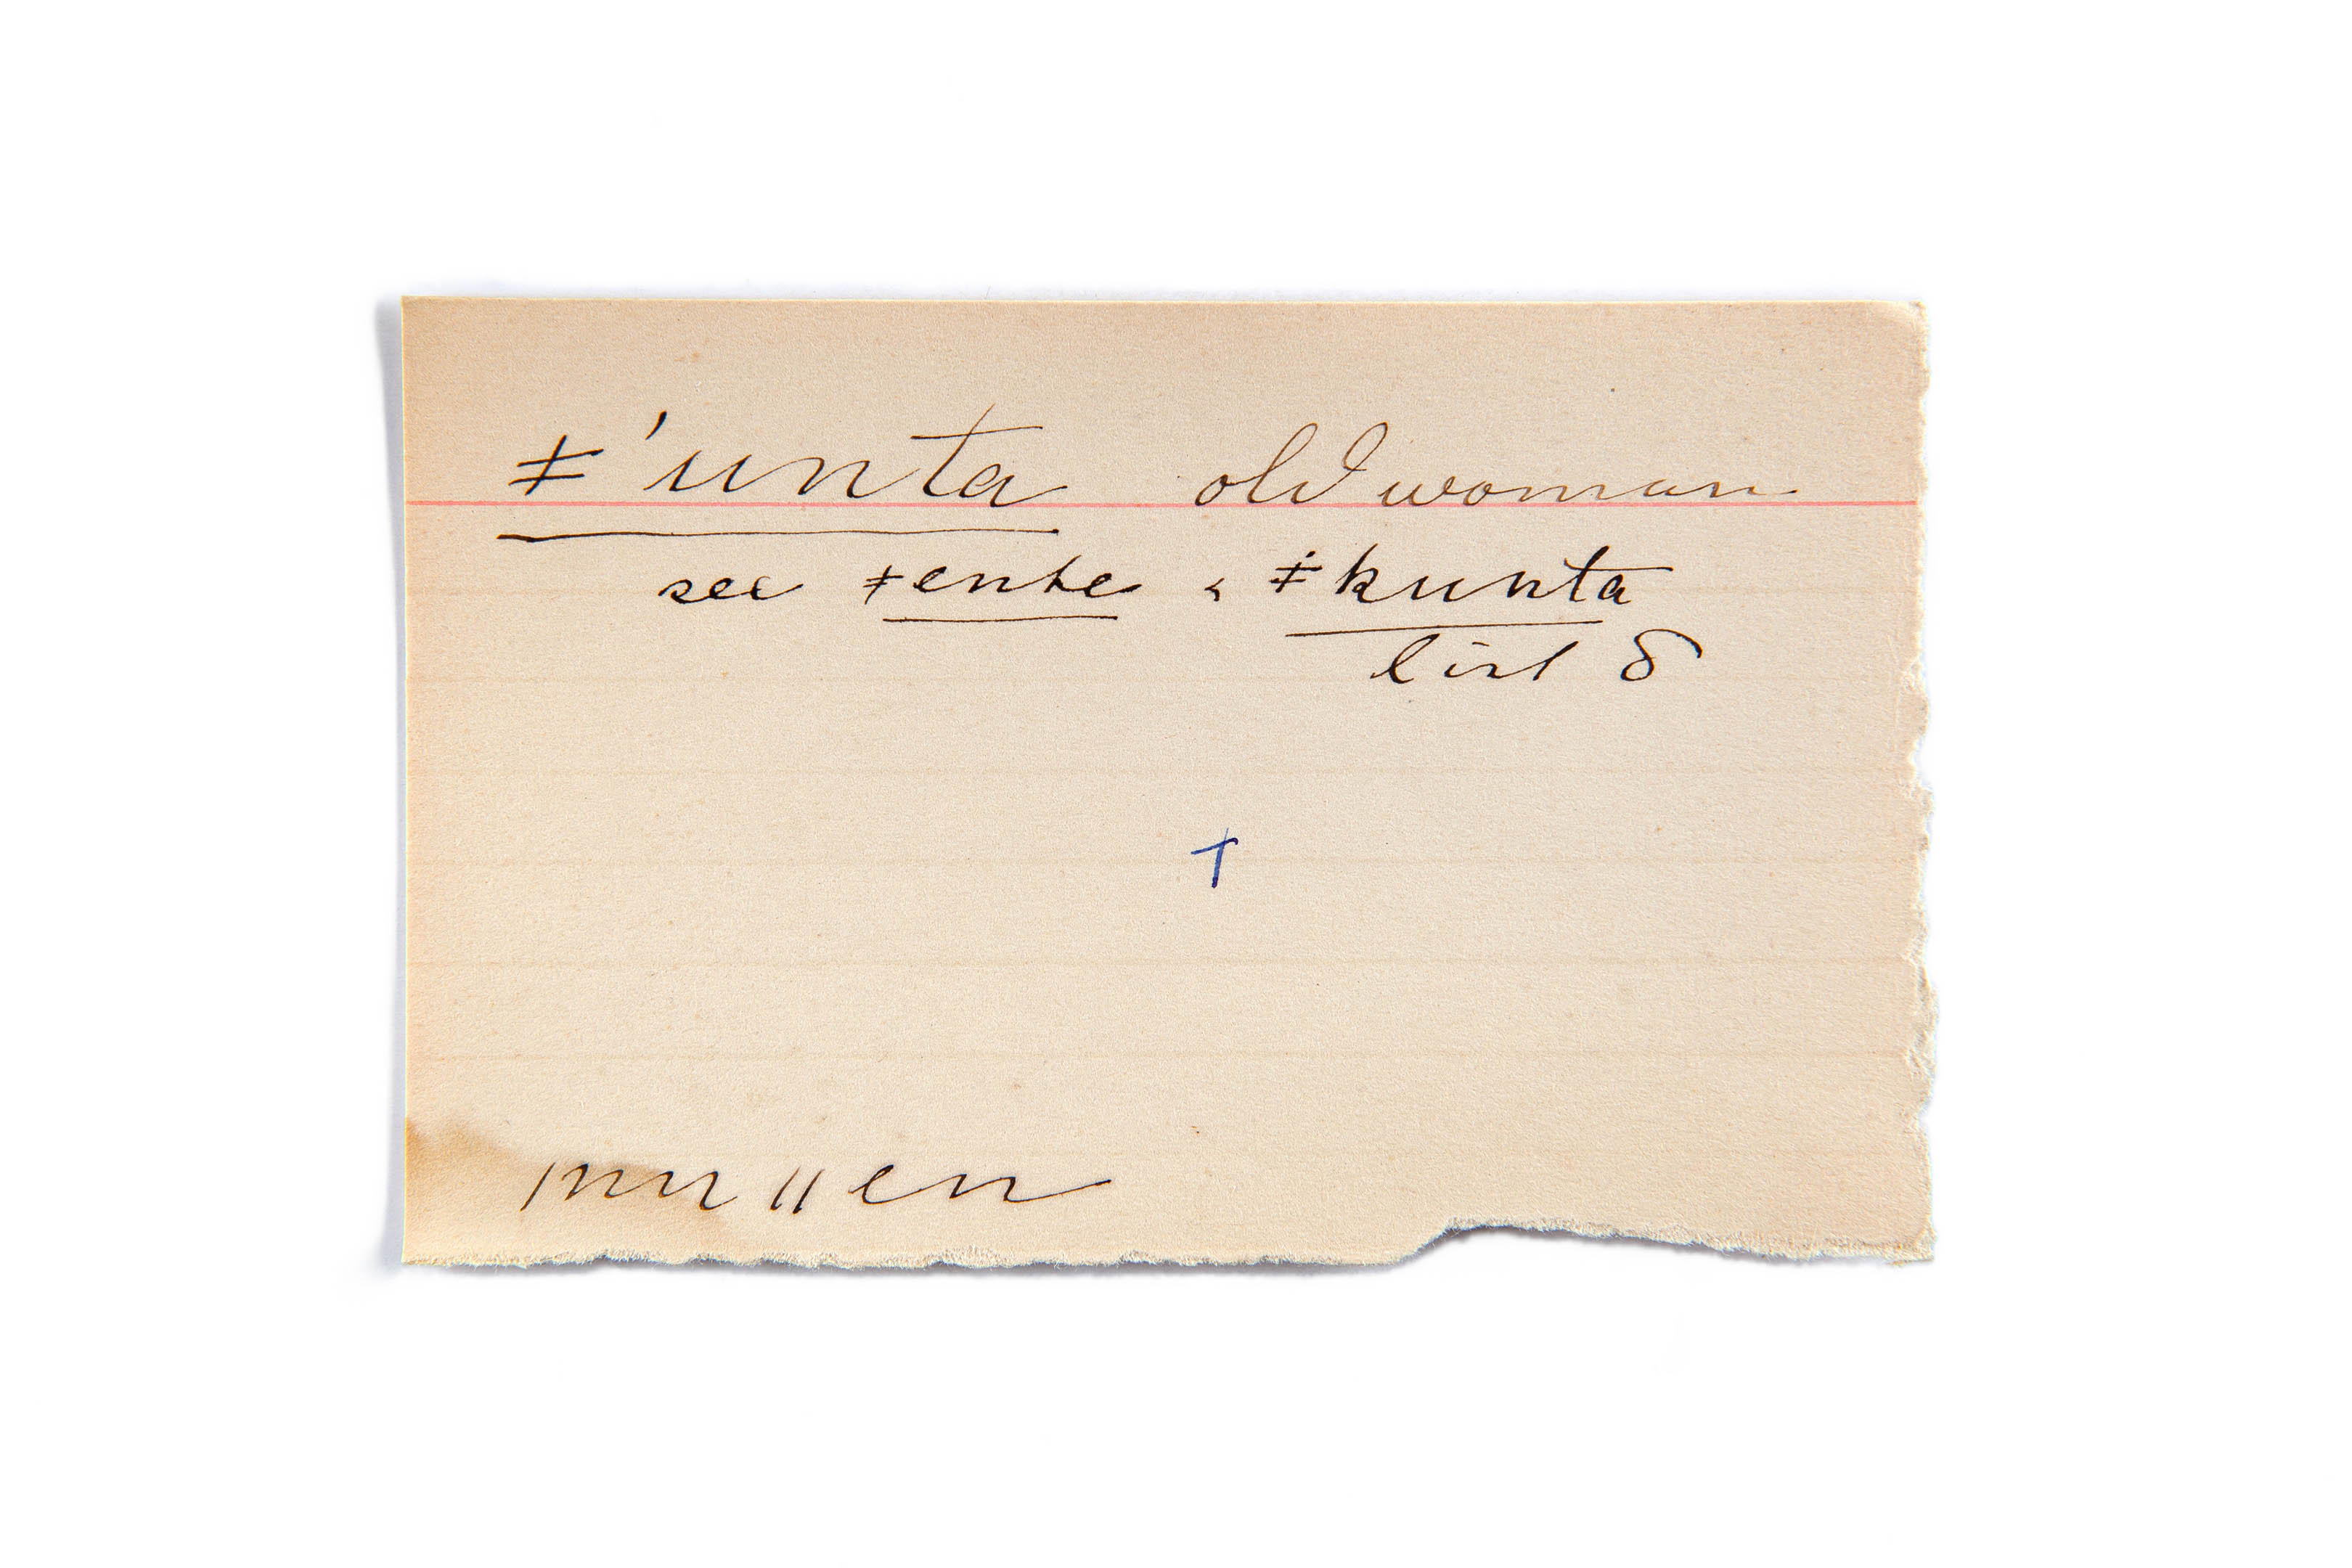 ǂ'unta old woman
see ǂenke & ǂkunta
list 8
†
|nu||en